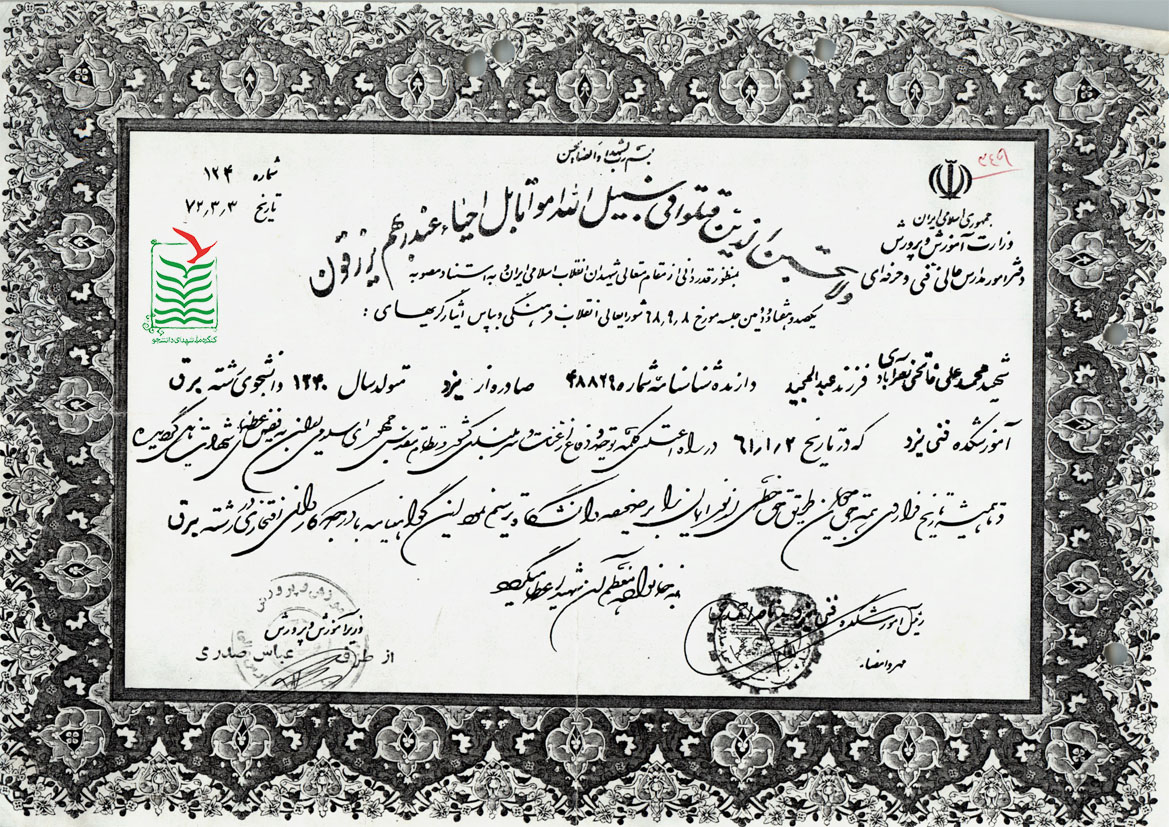 بسم رب الشهداء و الصالحین
شماره ۱۲۴
تاریخ ۷۲٫۳٫۳
۳۴۹
جمهوری اسلامی ایران
وزارت آموزش و پرورش
دفتر امور مدارس عالی فنی و حرفه ای
ولا تحسبن الذین قتلوا فی سبیل الله امواتا بل احیاء عند ربهم یرزقون
کنگره ملی شهدای دانشجو
بمنظور قدردانی از مقام متعالی شهیدان انقلاب اسلامی ایران و به استناد مصوبه
یکصد و هفتاد و دومین جلسه مورخ ۶۸٫۹٫۸ شورایعالی انقلاب فرهنگی و بپاس ایثارگریهای :
شهید محمد علی فاتحی نصرآبادی فرزند عبدالمجید دارنده شناسنامه شماره ۴۸۸۲۹ صادره از یزد متولد سال ۱۳۴۰ دانشجوی رشته برق
آموزشکده فنی یزد که در تاریخ ۶۱٫۱٫۲ در راه اعتلای کلمه توحید و دفاع از عزت و شرف میهن کشور و نظام مقدس جمهوری اسلامی ایران به فیض عظمای شهادت نایل گردیده
و تا همیشه تاریخ فرا روی همه حق طلبان طریق حق خطی از نور ایمان را بر صفحه دانشگاه ترسیم نمود این گواهینامه با درجه کاردانی افتخاری در رشته برق
به خانواده معظم آن شهید اعطا میگردد
رئیس آموزشکده فنی یزد
مهر و امضاء
وزیر آموزش و پرورش
از طرف عباس صدری